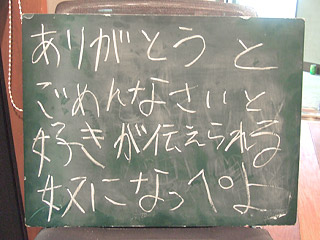 ありがとう と
ごめんなさいと
好きが伝えられる
奴になっぺよ